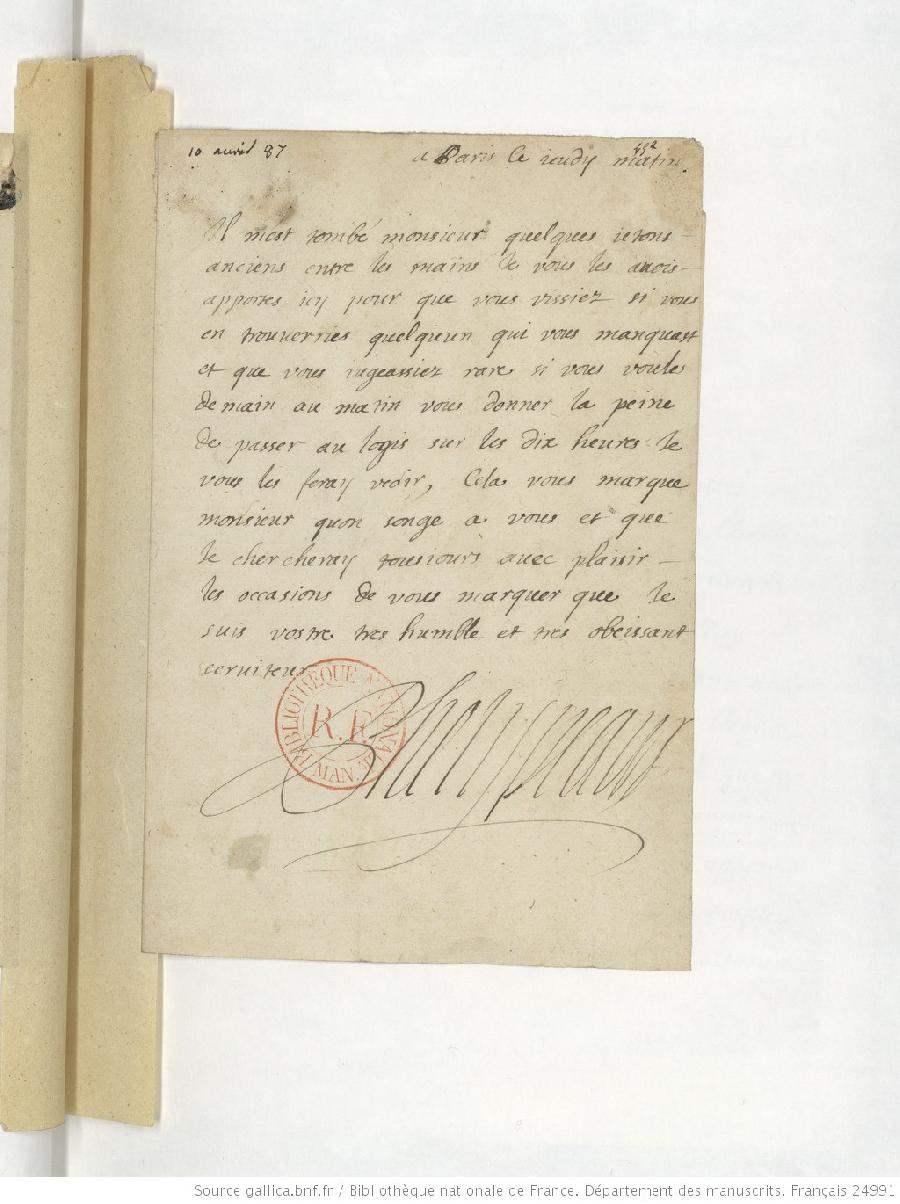 10 avril 87
452
a Paris le ieudy matin.
Il mest tombé monsieur quelques ietons
anciens entre les mains Ie vous les avois
apportes icy pour que vous vissiez si vous
en trouverries quelqueun qui vous manquast
et que vous iugeassiez rare si vous voules
demain au matin vous donner la peine
de passer au logis sur les dix heures Ie
vous les feray vedir, Cela vous marque
monsieur quon songe a vous et que
Ie chercheray tousiours avec plaisir
les occasions de vous marquer que Ie
suis vostre tres humble et tres obeissant
serviteur
BIBLIOTHEQUE NATIONALE
R.F.
MAN.
Source gallica.bnf.fr / Bibliothèque nationale de France. Département des manuscrits. Français 24991